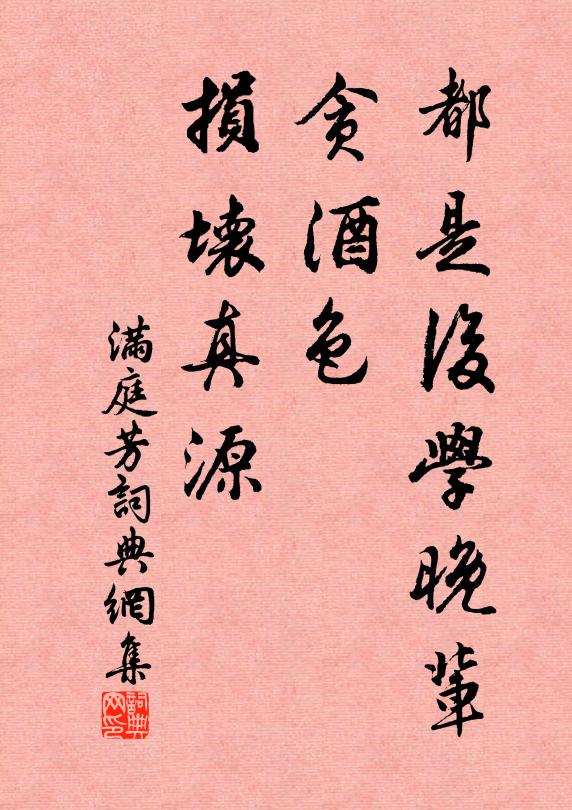 都是後學晚輩
貪酒色
損壞真源
滿庭芳詞典網集
詞典网印